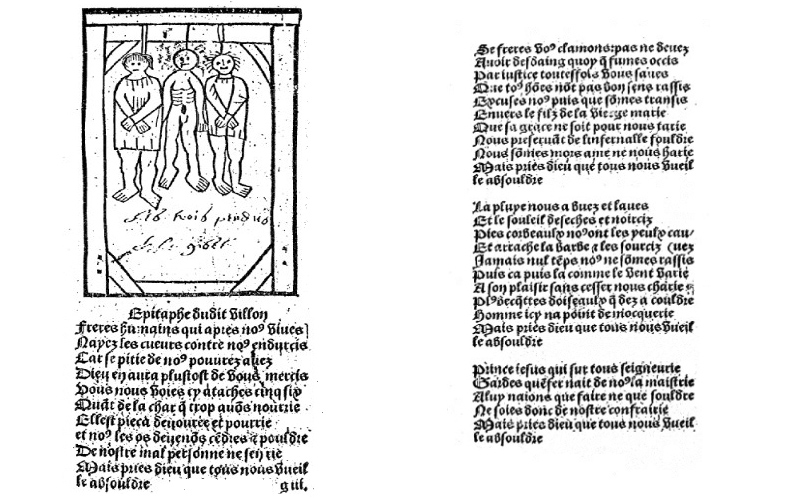 Les trois pendus
Epitaphe dudit villon
Freres humains qui apres noº viues
Nayez les cueurs contre noº endurcis
Car se pitie de noº pouurez auez
Dieu en aura plustost de vous mercis
Vous nous voies cy ataches cinq six
Quāt de la char q̄ trop auōs nourrie
Ellest pieca deuouree et pourrie
et noº les os deuenōs cēdres ⁊ pouldre
De nostre mal personne ne sen rie
Mais pries dieu que tous nous vueil
le absouldre
g iii.
Se freres voº clamons: pas ne deuez
Auoir desdaing quoy q̄ fumes occis
Par iustice touteffois vous saues
Que toº hōes nōt pas bon sens rassis
Excuses noº puis que sōmes transis
Enuers le filz de la vierge marie
Que sa grace ne soit pour nous tarie
Nous preseruāt de linfernalle fouldre
Nous sōmes mors ame ne nous harie
Mais pries dieu que tous nous vueil
le absouldre
La pluye nous a buez et laues
Et le souleil deseches et noircis
Pies corbeaulx noº ont les yeulx cau/
Et arrache la barbe ⁊ les sourciz (uez
Jamais nul tēps noº ne sōmes rassis
Puis ca puis la comme le vent varie
A son plaisir sans cesser nous charie
Plº becq̄tes doiseaulx q̄ dez a couldre
Homme icy na point de mocquerie
Mais pries dieu que tous nous vueil
le absouldre
Prince iesus qui sur tous seigneurie
Gardes quēfer nait de noº la maistrie
A luy naions que faire ne que souldre
Ne soies donc de nostre confrairie
Mais pries dieu que tous nous vueil
le absouldre